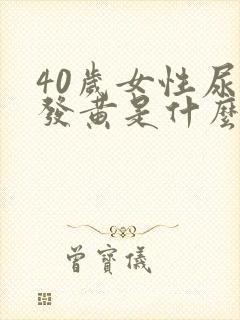 40歲女性尿
發黃是什麼
曾寶儀